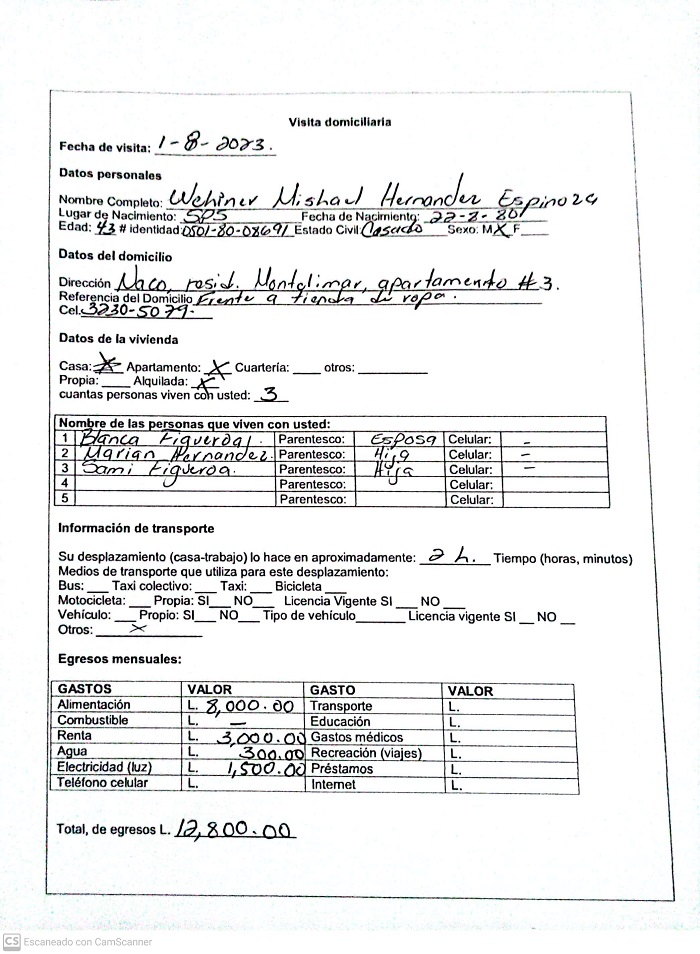 Visita domiciliaria
Fecha de visita: 1-8-2023.
Datos personales
Nombre Completo: Wehiner Mishael Hernandez Espinoza
Lugar de Nacimiento: SPS Fecha de Nacimiento: 22-8-80
Edad: 43 # identidad: 0501-80-08691 Estado Civil: Casado Sexo: M X F___
Datos del domicilio
Dirección Naco, resid. Montglimar, apartamento #3.
Referencia del Domicilio Frente a tienda de ropa.
Cel. 3230-5079.
Datos de la vivienda
Casa: X Apartamento: X Cuartería: ____ otros: __________
Propia: ____ Alquilada: X
cuantas personas viven con usted: 3
Nombre de las personas que viven con usted:
1 Blanca Figueroa. Parentesco: Esposa Celular: -
2 Marian Hernandez. Parentesco: Hija Celular: -
3 Sami Figueroa. Parentesco: Hija Celular: -
4 Parentesco: Celular:
5 Parentesco: Celular:
Información de transporte
Su desplazamiento (casa-trabajo) lo hace en aproximadamente: 2 h. Tiempo (horas, minutos)
Medios de transporte que utiliza para este desplazamiento:
Bus: ___ Taxi colectivo: ___ Taxi: ___ Bicicleta ___
Motocicleta: ___ Propia: SI___ NO___ Licencia Vigente SI ___ NO ___
Vehículo: ___ Propio: SI___ NO___ Tipo de vehículo_______ Licencia vigente SI __ NO __
Otros: X
Egresos mensuales:
GASTOS VALOR GASTO VALOR
Alimentación L. 8,000.00 Transporte L.
Combustible L. — Educación L.
Renta L. 3,000.00 Gastos médicos L.
Agua L. 300.00 Recreación (viajes) L.
Electricidad (luz) L. 1,500.00 Préstamos L.
Teléfono celular L. Internet L.
Total, de egresos L. 12,800.00
CS Escaneado con CamScanner